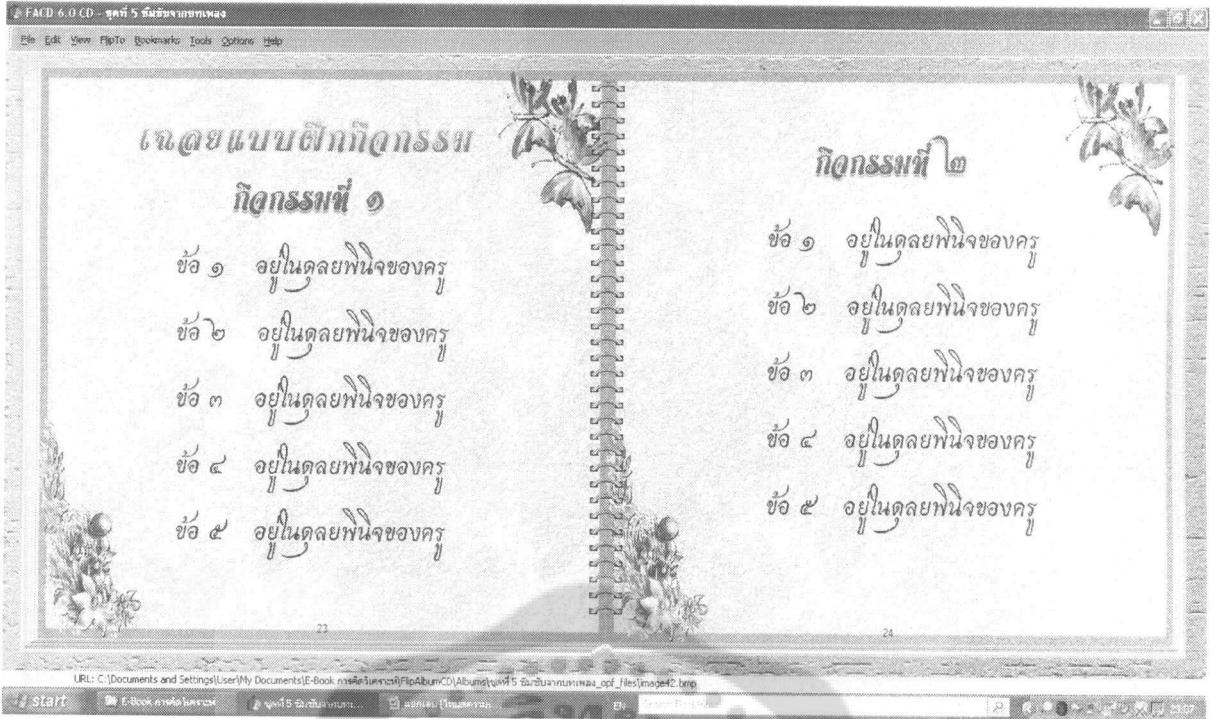 FACD 6.0 CD - ชุดที่ 5 ซึมซับจากบทเพลง
File Edit View FlipTo Bookmarks Tools Options Help
เฉลยแบบฝึกกิจกรรม
กิจกรรมที่ ๑
ข้อ ๑ อยู่ในดุลยพินิจของครู
ข้อ ๒ อยู่ในดุลยพินิจของครู
ข้อ ๓ อยู่ในดุลยพินิจของครู
ข้อ ๔ อยู่ในดุลยพินิจของครู
ข้อ ๕ อยู่ในดุลยพินิจของครู
23
กิจกรรมที่ ๒
ข้อ ๑ อยู่ในดุลยพินิจของครู
ข้อ ๒ อยู่ในดุลยพินิจของครู
ข้อ ๓ อยู่ในดุลยพินิจของครู
ข้อ ๔ อยู่ในดุลยพินิจของครู
ข้อ ๕ อยู่ในดุลยพินิจของครู
24
URL: C:\Documents and Settings\User\My Documents\E-Book การคิดวิเคราะห์\FlipAlbumCD\Albums\ชุดที่ 5 ซึมซับจากบทเพลง_opf_files\image42.bmp
start E-Book การคิดวิเคราะห์ ชุดที่ 5 ซึมซับจากบท... EN 23:07